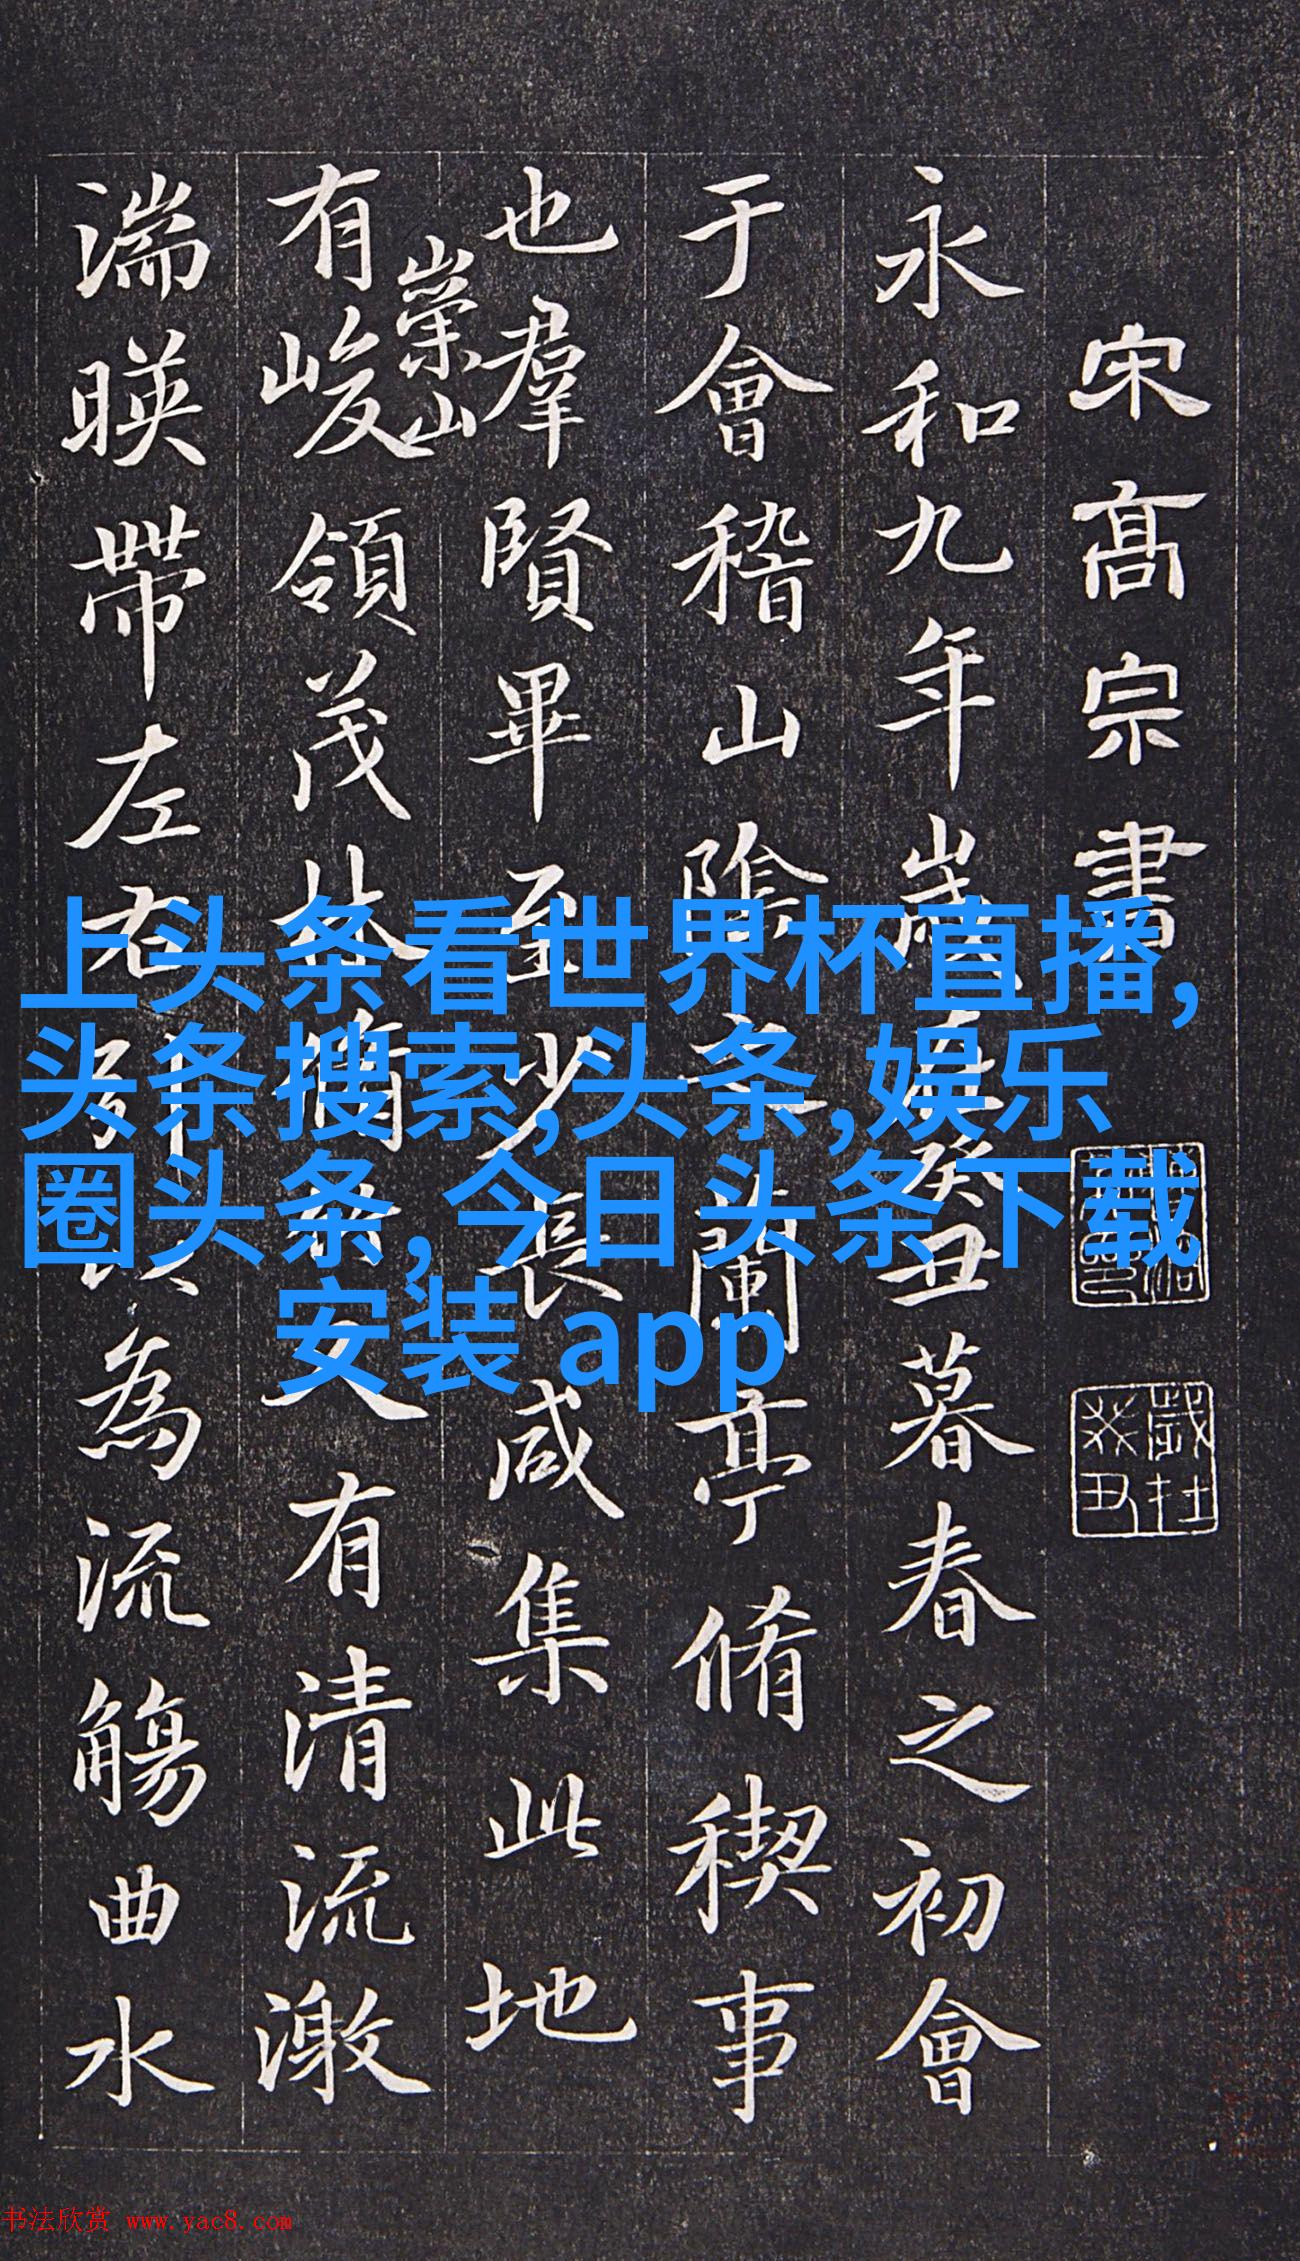 宋高宗書
永和九年歲在癸丑暮春之初會
于會稽山陰之蘭亭脩稧事
也羣賢畢至少長咸集此地
有崇山
峻領茂林脩竹又有清流激
湍暎帶左右引以為流觴曲水
上头条看世界杯直播,
头条搜索,头条,娱乐
圈头条, 今日头条下载
安装 app
歲杜
癸丑
书法欣赏 www.yac8.com